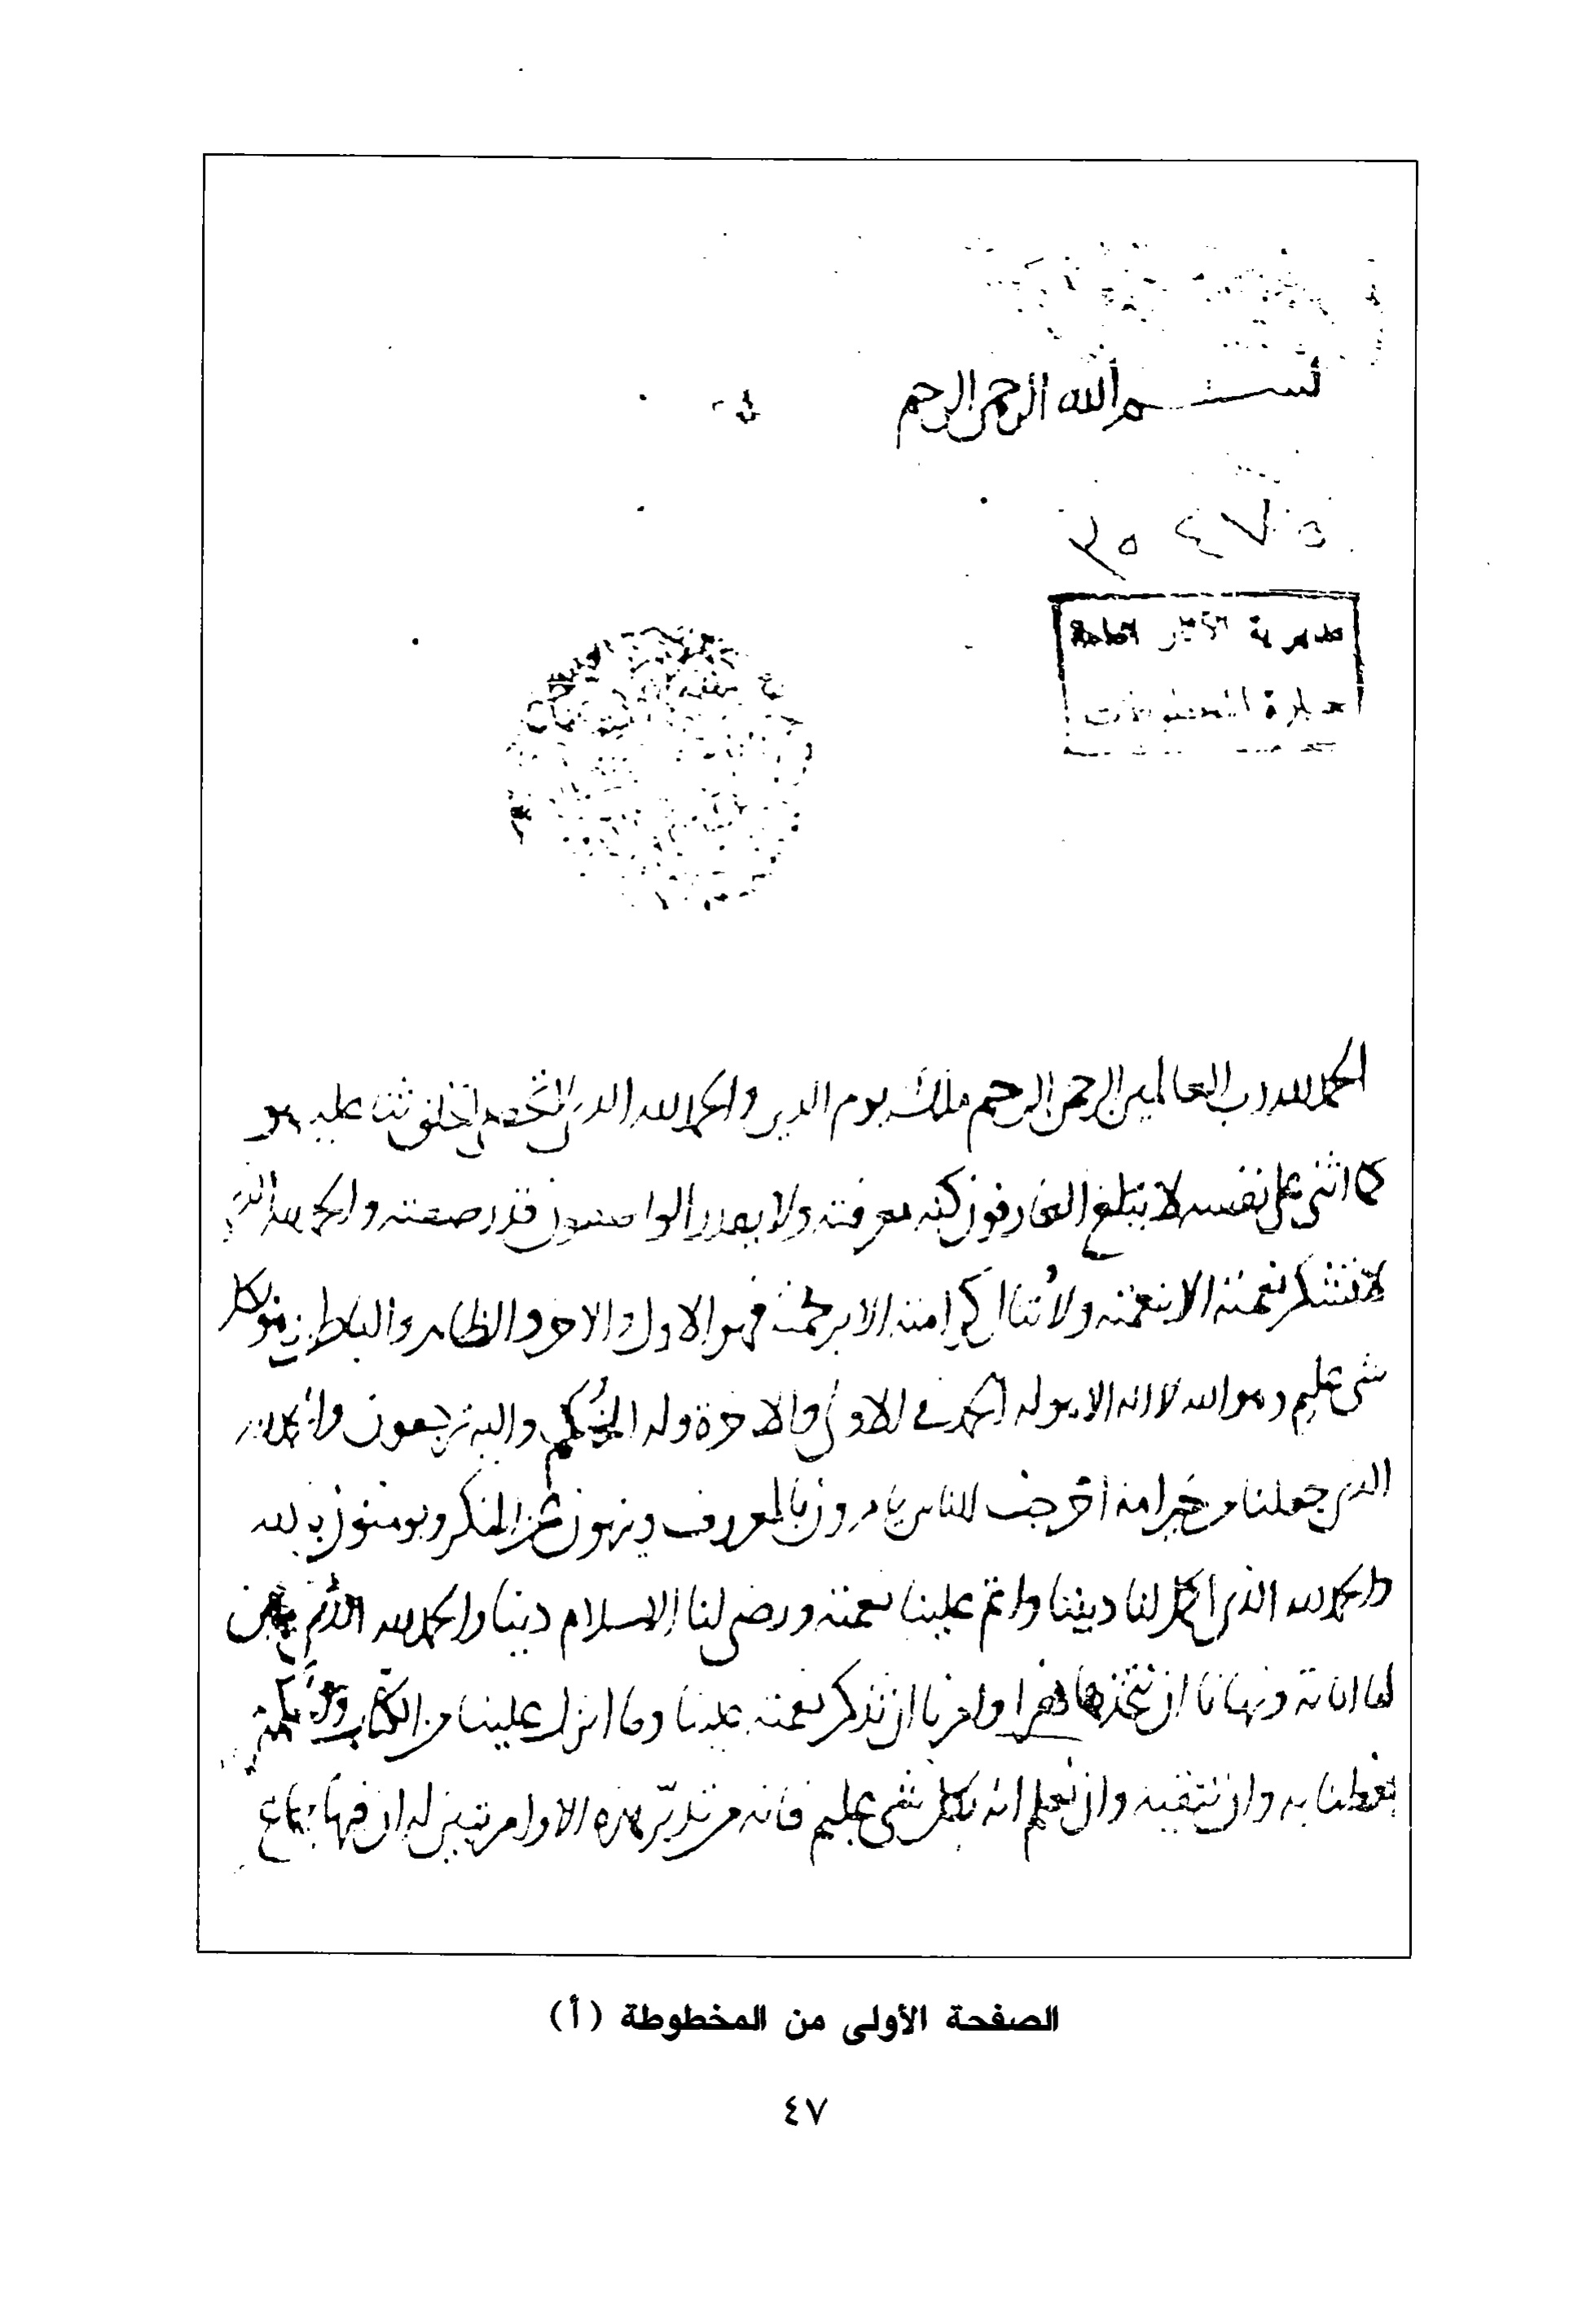 بسم الله الرحمن الرحيم
٥٧٤٥٣
مديرية الآثار العامة
الحمد لله رب العالمين الرحمن الرحيم ملك يوم الدين والحمد لله الذي لا يحصي الخلق ثناء عليه هو
كما اثنى على نفسه لا يبلغ العارفون كنه معرفته ولا يقدر الواصفون قدر صفته والحمد لله الذي
لا تشكر نعمته الا بنعمته ولا تنال كرامته الا برحمته فهو الاول والاخر والظاهر والباطن وهو بكل
شي عليم وهو الله لا اله الا هو له الحمد في الاولى والاخرة وله الحكم واليه ترجعون والحمد لله
الذي جعلنا من خير امة اخرجت للناس يامرون بالمعروف وينهون عن المنكر ويومنون بالله
والحمد لله الذي اكمل لنا ديننا واتم علينا نعمته ورضي لنا الاسلام دينا والحمد لله الذي بين
لنا اياته ونهانا ان نتخذها هزوا وامرنا ان نذكر نعمته علينا وما انزل علينا من الكتاب والحكمة
يعظنا به وان نتقيه وان نعلم انه بكل شي عليم فانه من تدبر هذه الاوامر تبين له ان فيها جماع
الصفحة الأولى من المخطوطة (أ)
٤٧